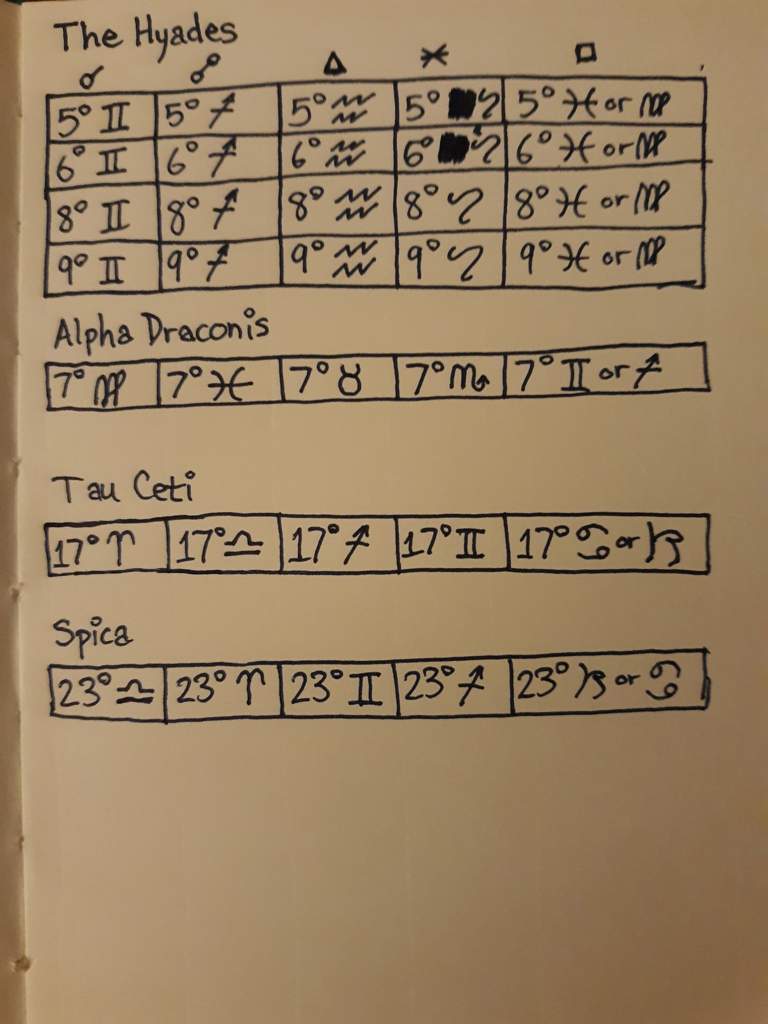 The Hyades
☌ ☍ △ ⚹ □
5° ♊ 5° ♐ 5° ♒ 5° ♌ 5° ♓ or ♍
6° ♊ 6° ♐ 6° ♒ 6° ♌ 6° ♓ or ♍
8° ♊ 8° ♐ 8° ♒ 8° ♌ 8° ♓ or ♍
9° ♊ 9° ♐ 9° ♒ 9° ♌ 9° ♓ or ♍
Alpha Draconis
7° ♍ 7° ♓ 7° ♉ 7° ♏ 7° ♊ or ♐
Tau Ceti
17° ♈ 17° ♎ 17° ♐ 17° ♊ 17° ♋ or ♑
Spica
23° ♎ 23° ♈ 23° ♊ 23° ♐ 23° ♑ or ♋